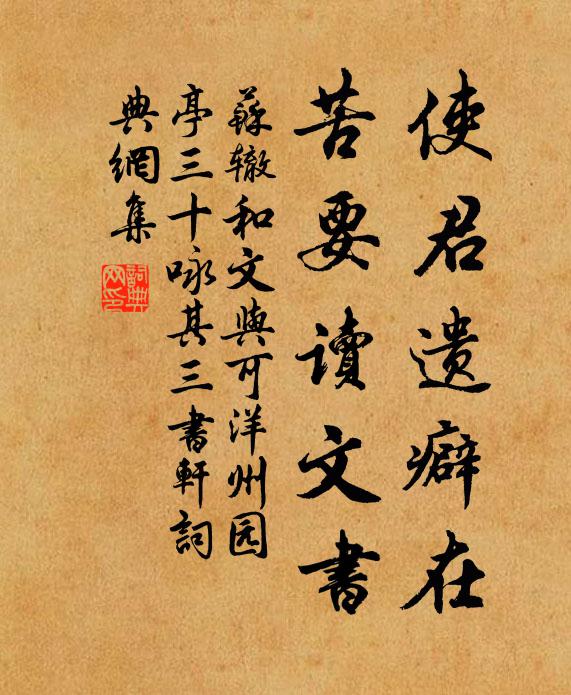 使君遗癖在
苦要讀文書
蘇辙和文與可洋州园
亭三十咏其三書軒詞
典網集
詞典网印